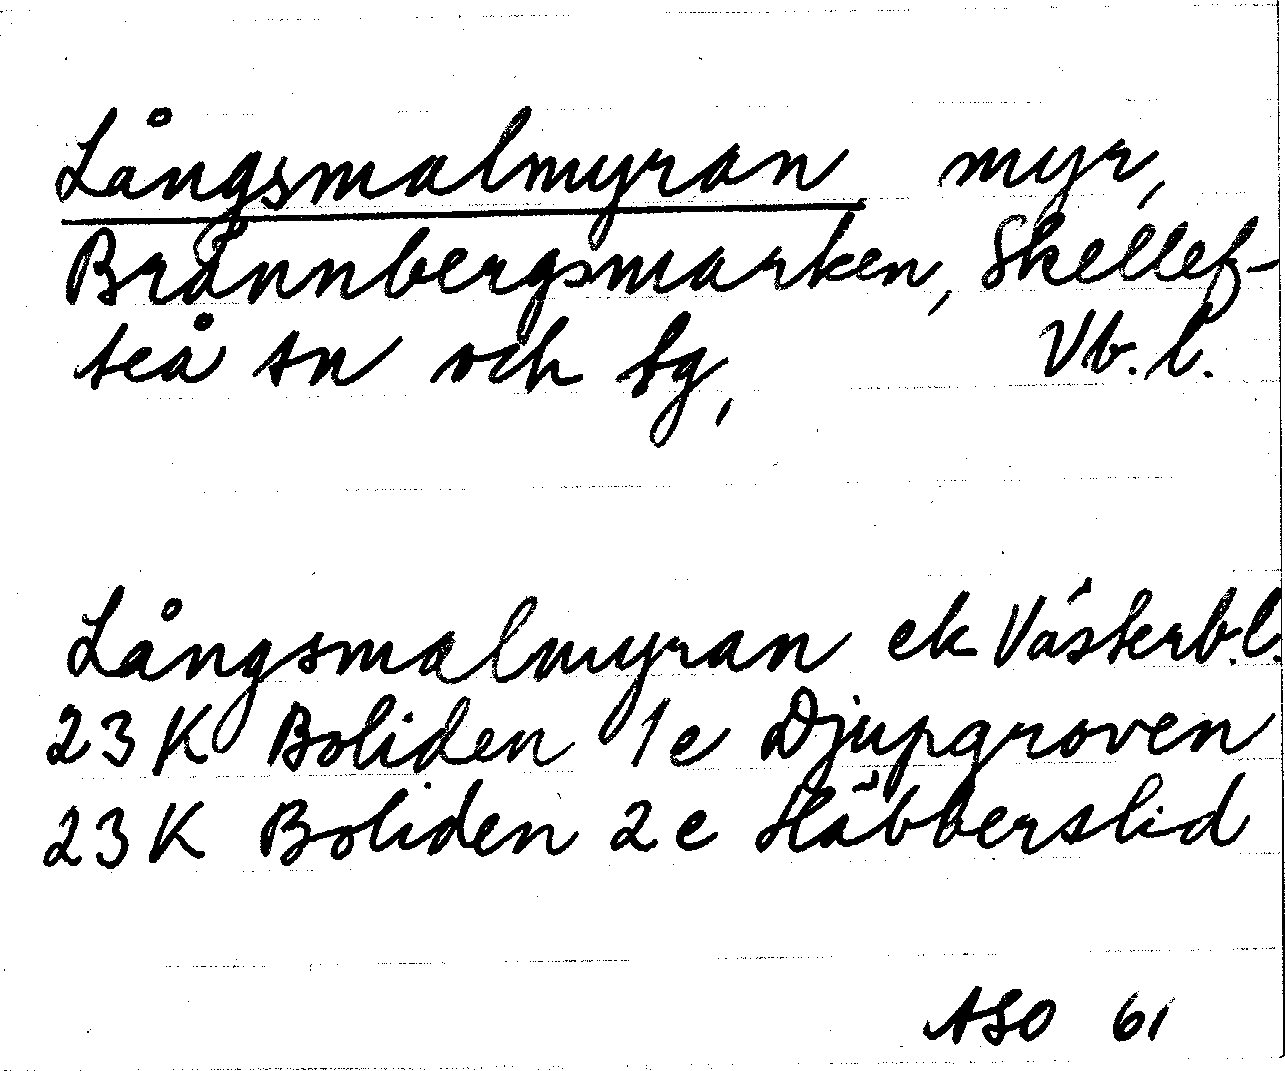 Långsmalmyran myr,
Brännbergsmarken, Skellef-
teå sn och tg, Vb.l.
Långsmalmyran ek Västerb.l.
23 K Boliden 1e Djupgroven
23 K Boliden 2e Häbbersliden
ASO 61